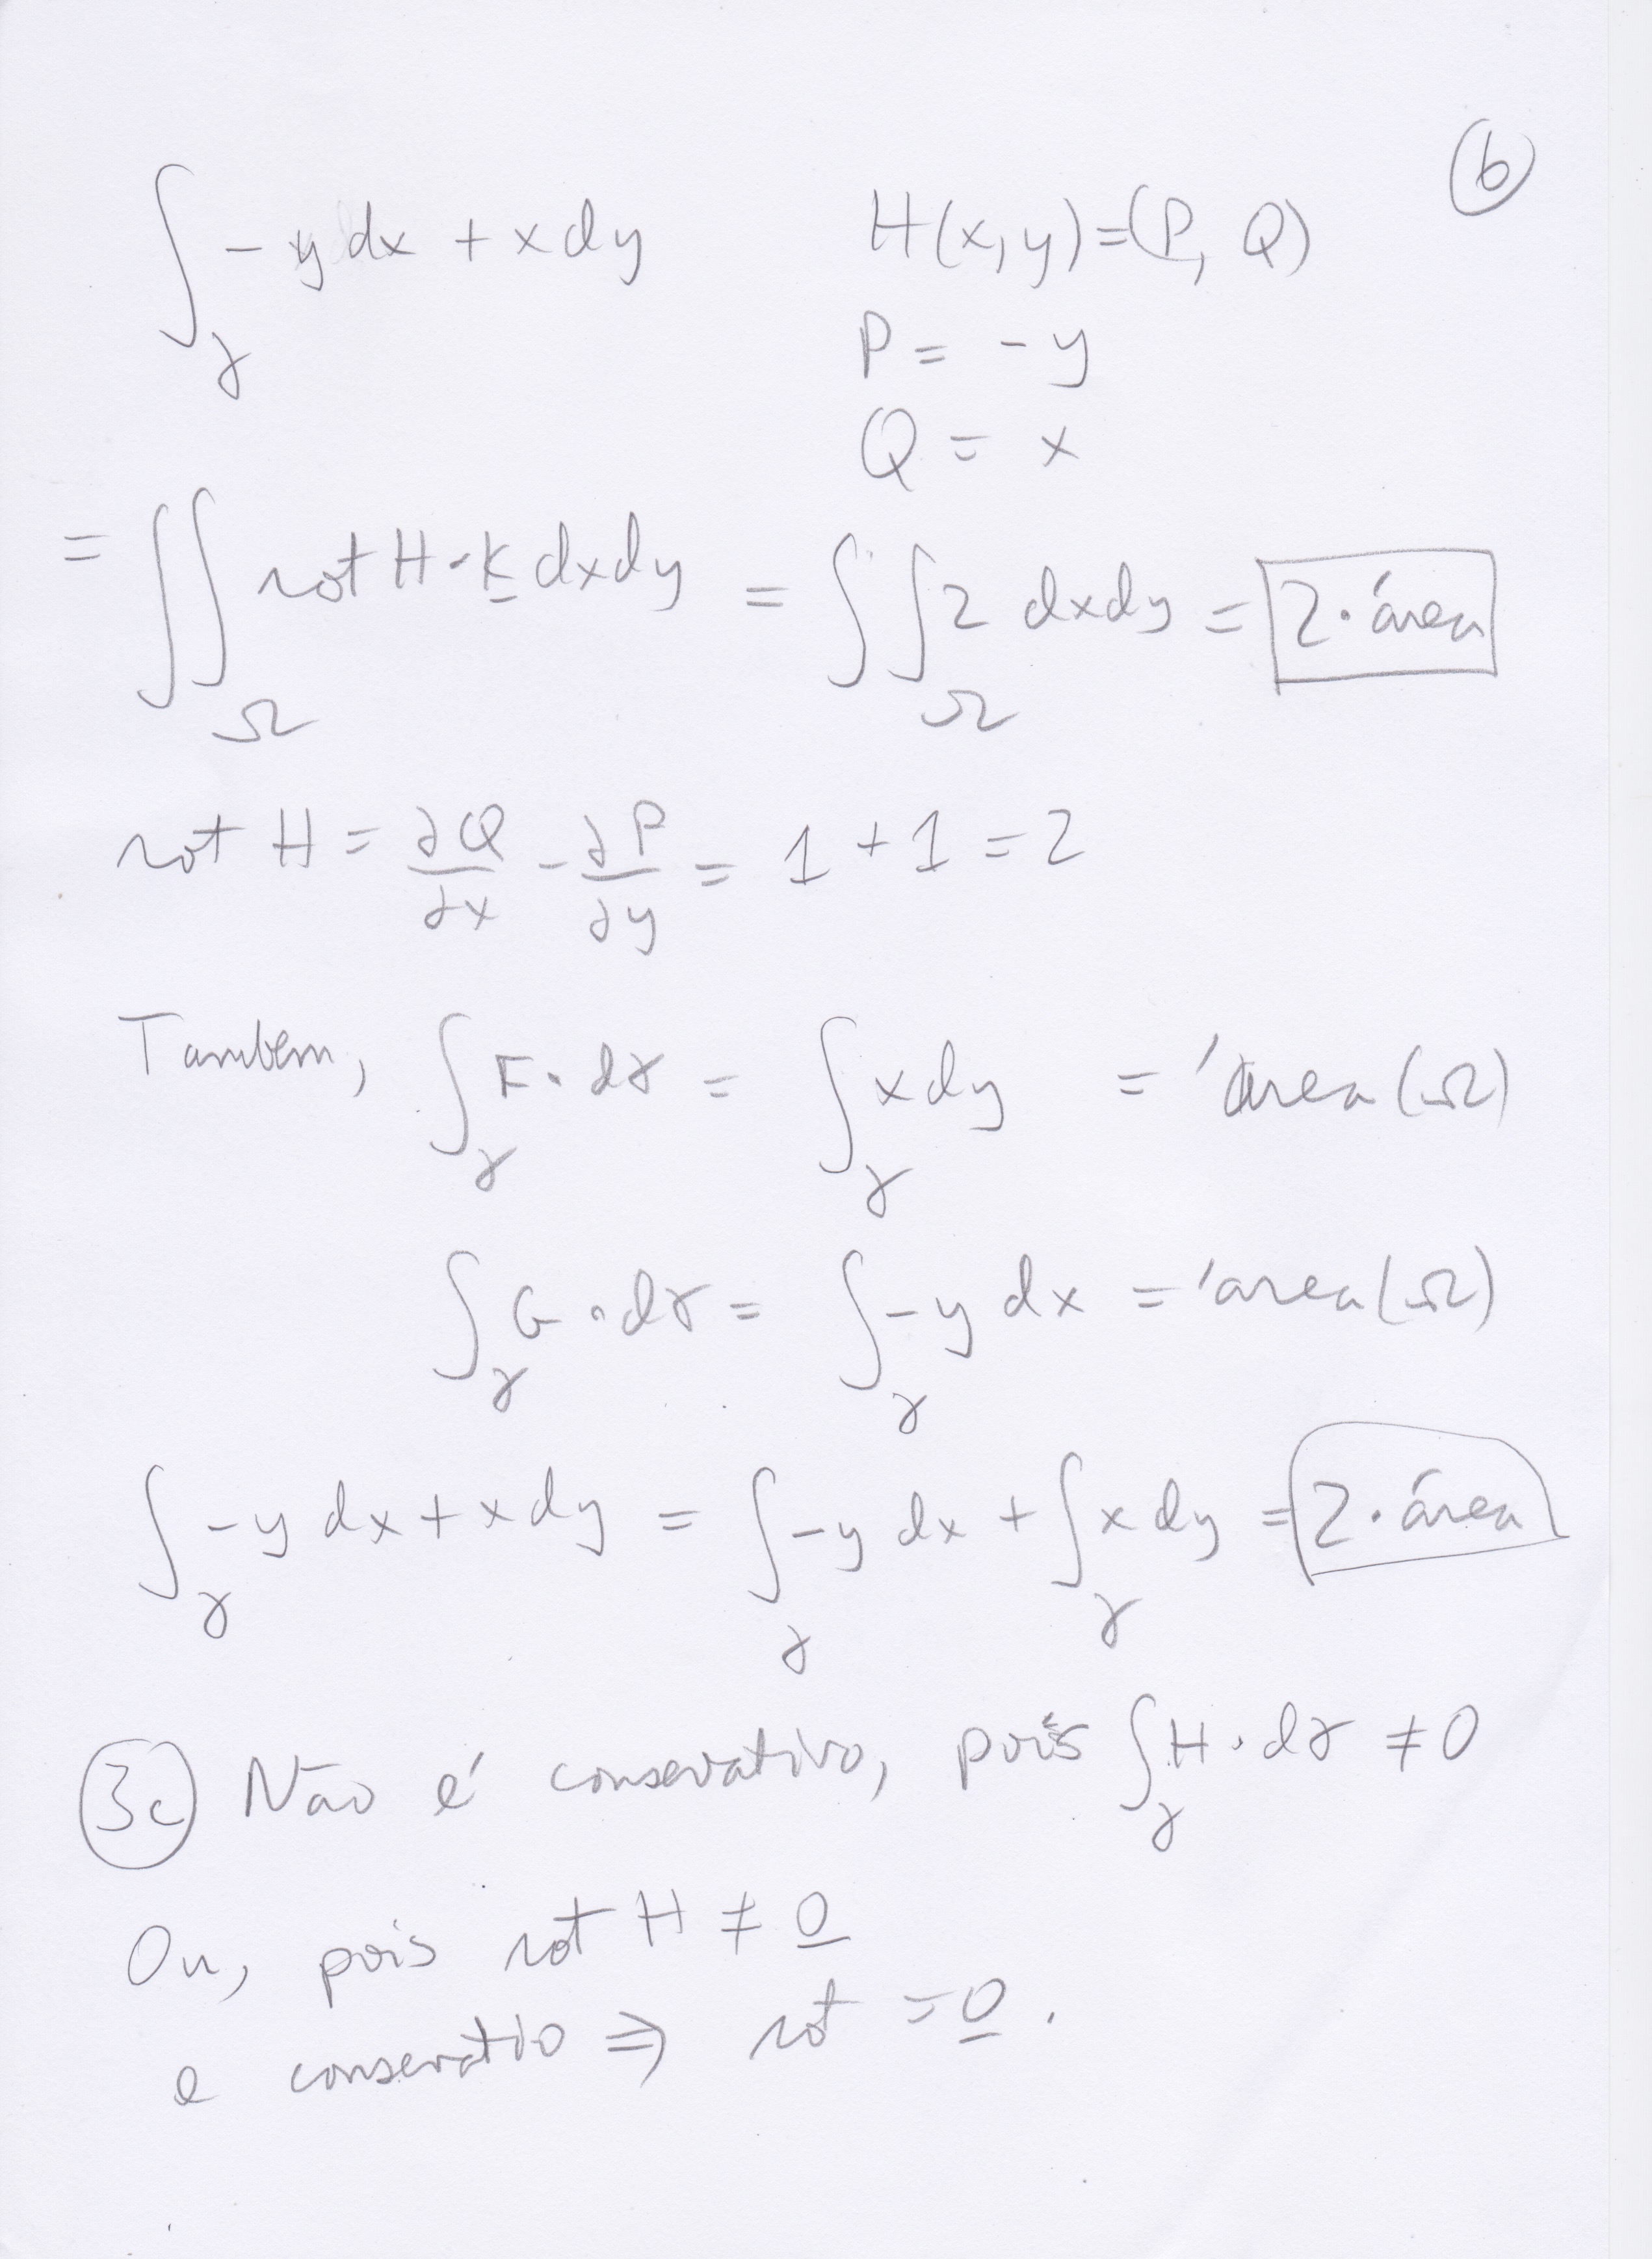 6
∫_γ -y dx + x dy    H(x, y) = (P, Q)
P = -y
Q = x
= ∫∫_Ω rot H · k dx dy = ∫∫_Ω 2 dx dy = 2 · área
rot H = ∂Q/∂x - ∂P/∂y = 1 + 1 = 2
Tambem, ∫_γ F · dγ = ∫_γ x dy = área (Ω)
∫_γ G · dγ = ∫_γ -y dx = área (Ω)
∫_γ -y dx + x dy = ∫_γ -y dx + ∫_γ x dy = 2 · área
3c Não é conservativo, pois ∫_γ H · dγ ≠ 0
Ou, pois rot H ≠ 0
e conservativo ⇒ rot = 0.